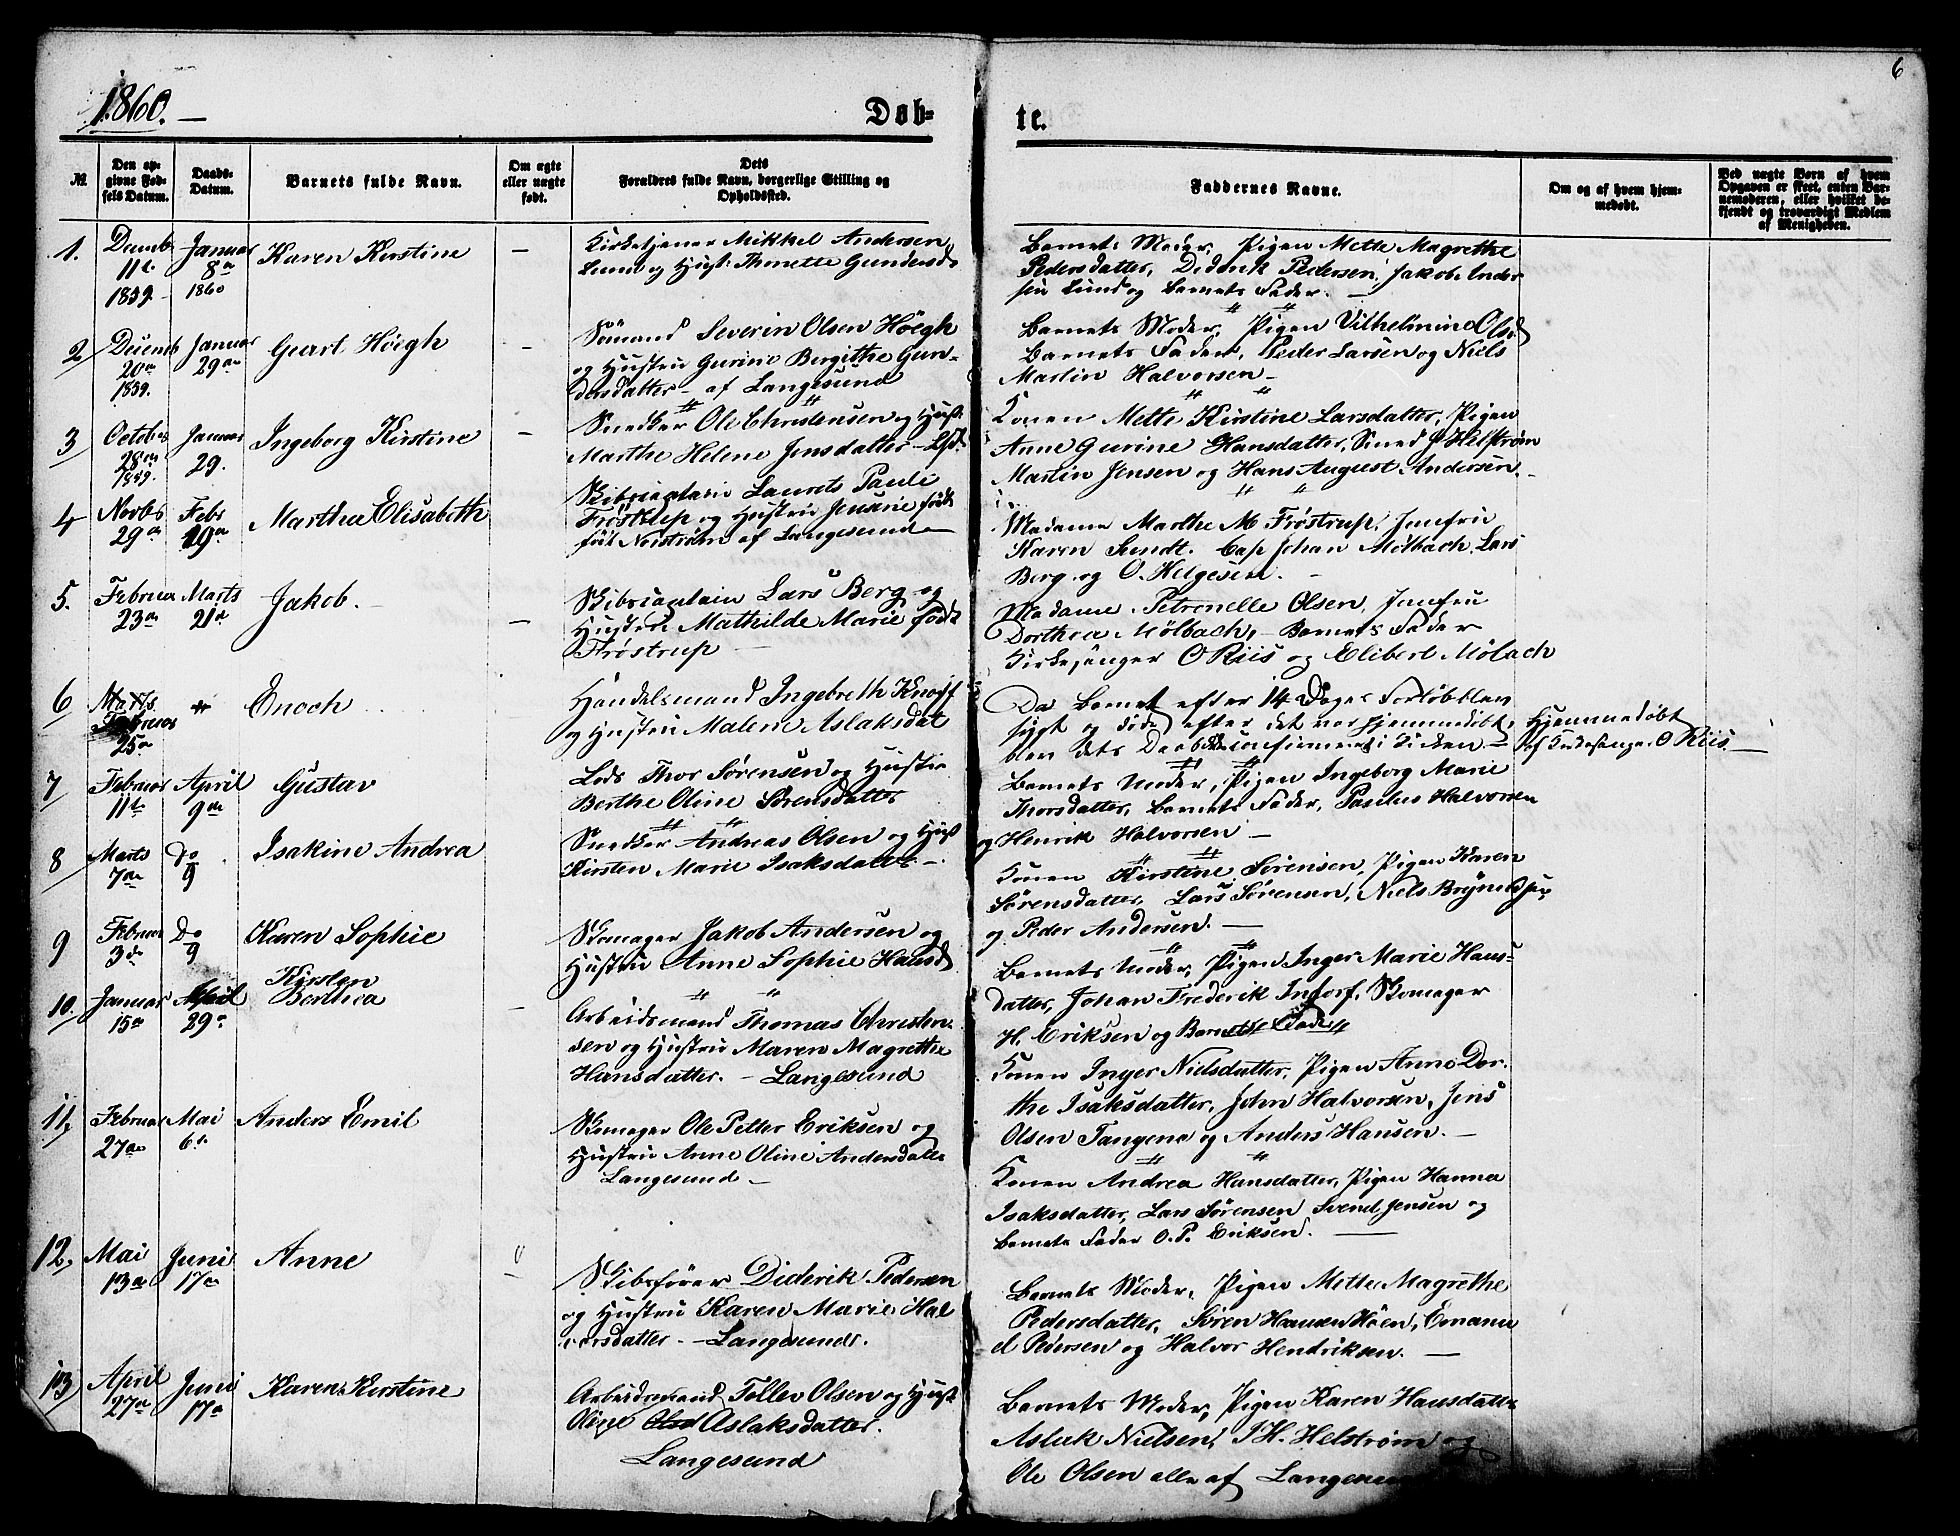 6
1860. —
Døb-
te.
№
Den op-
givne Fød-
sels Datum.
Daabs-
Datum.
Barnets fulde Navn.
Om ægte
eller uægte
født.
Dets
Forældres fulde Navn, borgerlige Stilling og
Opholdssted.
Faddernes Navne.
Om og af hvem hjem-
medøbt.
Ved uægte Børn af hvem
Opgaven er skeet, enten Bar-
nemoderen, eller hvilket be-
kjendt og troværdigt Medlem
af Menigheden.
1.
Decmb
11t.
1859.
Januar
8de
1860
Karen Kirstine
—
Kirketjener Mikkel Andersen
Lund og Hust: Thonette Gundersd.
Barnets Moder, Pigen Mette Magrethe
Pedersdatter, Diderik Pedersen, Jakob Ander
sen Lund og Barnets Fader. —
2
Decemb
20de
1859.
Januar
29de
Geart Høegh
—
Sömand Severin Olsen Höegh
og Hustru Gurine Bergithe Gun-
dersdatter – af Langesund
Barnets Moder, Pigen Vilhelmine Olsd
Barnets Fader, Peder Larsen og Niels
Martin Halvorsen —
3
October
28de
1859.
Januar
29.
Ingeborg Kirstine
—
Snedker Ole Christensen og Hust.
Marthe Helene Jensdatter – Lgsd.
Konen Mette Kirstine Larsdatter, Pigen
Anne Gurine Hansdatter, Smed J Helstrøm
Martin Jensen og Hans August Andersen. —
4
Novbr
29de
Febr
19de
Marthe Elisabeth
Skibscaptain Laurets Pauli
Frøstrup og Hustru Jensine født
Norstrøm af Langesund —
Madame Marthe M. Frøstrup, Jomfru
Karen Sundt. Cap Johan Mølbach, Lars
Berg og O. Helgesen. —
5.
Februar
23de
Marts
21de
Jakob. —
—
Skibscaptain Lars Berg og
Hustru Mathilde Marie født
Frøstrup —
Madame Petronelle Olsen, Jomfru
Dorthea Mölbach, – Barnets Fader
Kirkesanger O Riis og Elibert Mölbach
6
Marts
Februar
25de
Enoch
Handelsmand Ingebreth Knoff
og Hustru Malene Aslaksdat
Da Barnet efter 14 Dages Forløb blev
sygt og døde efter det var hjemmedøbt,
blev dets Daab ei confirmeret i Kirken. —
Hjemmedøbt
af Kirkesanger O Riis. —
7
Februar
11t.
April
9de
Gustav
Lods Thor Sørensen og Hustru
Berthe Oline Sørensdatter
Barnets Moder, Pigen Ingeborg Marie
Thorsdatter, Barnets Fader, Paulus Halvorsen
og Henrik Halvorsen —
8
Marts
7de
Do
9
Isakine Andrea
Snedker Andreas Olsen og Hust
Kirsten Marie Isaksdatter –.
Konen Kirstine Sørensen, Pigen Karen
Sørensdatter, Lars Sørensen, Niels Brynildsen
og Peder Andersen. —
9
Februar
3de
Do
9
Karen Sophie
Skomager Jakob Andersen og
Hustru Anne Sophie Hansd.
Barnets Moder, Pigen Inger Marie Hans-
datter, Johan Frederik Indorf, Skomager
H. Eriksen og Barnets Fader
10.
Januar
15de
April
29de
Kirsten
Berthea
—
Arbeidsmand Thomas Christen-
sen og Hustru Maren Magrethe
Hansdatter. – Langesund
Konen Inger Nielsdatter, Pigen Anne Dor-
the Isaksdatter, John Halvorsen, Jens
Olsen Tangene og Anders Hansen. —
11,
Februar
27de
Mai
6t.
Anders Emil
Skomager Ole Petter Eriksen og
Hustru Anne Oline Andersdatter
Langesund —
Konen Andrea Hansdatter, Pigen Hanna
Isaksdatter, Lars Sørensen Svend Jensen og
Barnets Fader O. P. Eriksen. —
12,
Mai
13de
Juni
17de
Anne
Skibsfører Diderik Pedersen
og Hustru Karen Marie Hal
vorsdatter. – Langesund.
Barnets Moder, Pigen Mette Magrethe
Pedersdatter, Sören Hansen Höen, Emanu
el Pedersen og Halvor Hendriksen. —
13
April
27de
Juni
17de
Karen Kirstine
Arbeidsmand Tellev Olsen og Hust
Oline Olsd Aslaksdatter.
Langesund
Barnets Moder, Pigen Karen Hansdatter
Aslak Nielsen, J H. Helstrøm og
Ole Olsen alle af Langesund